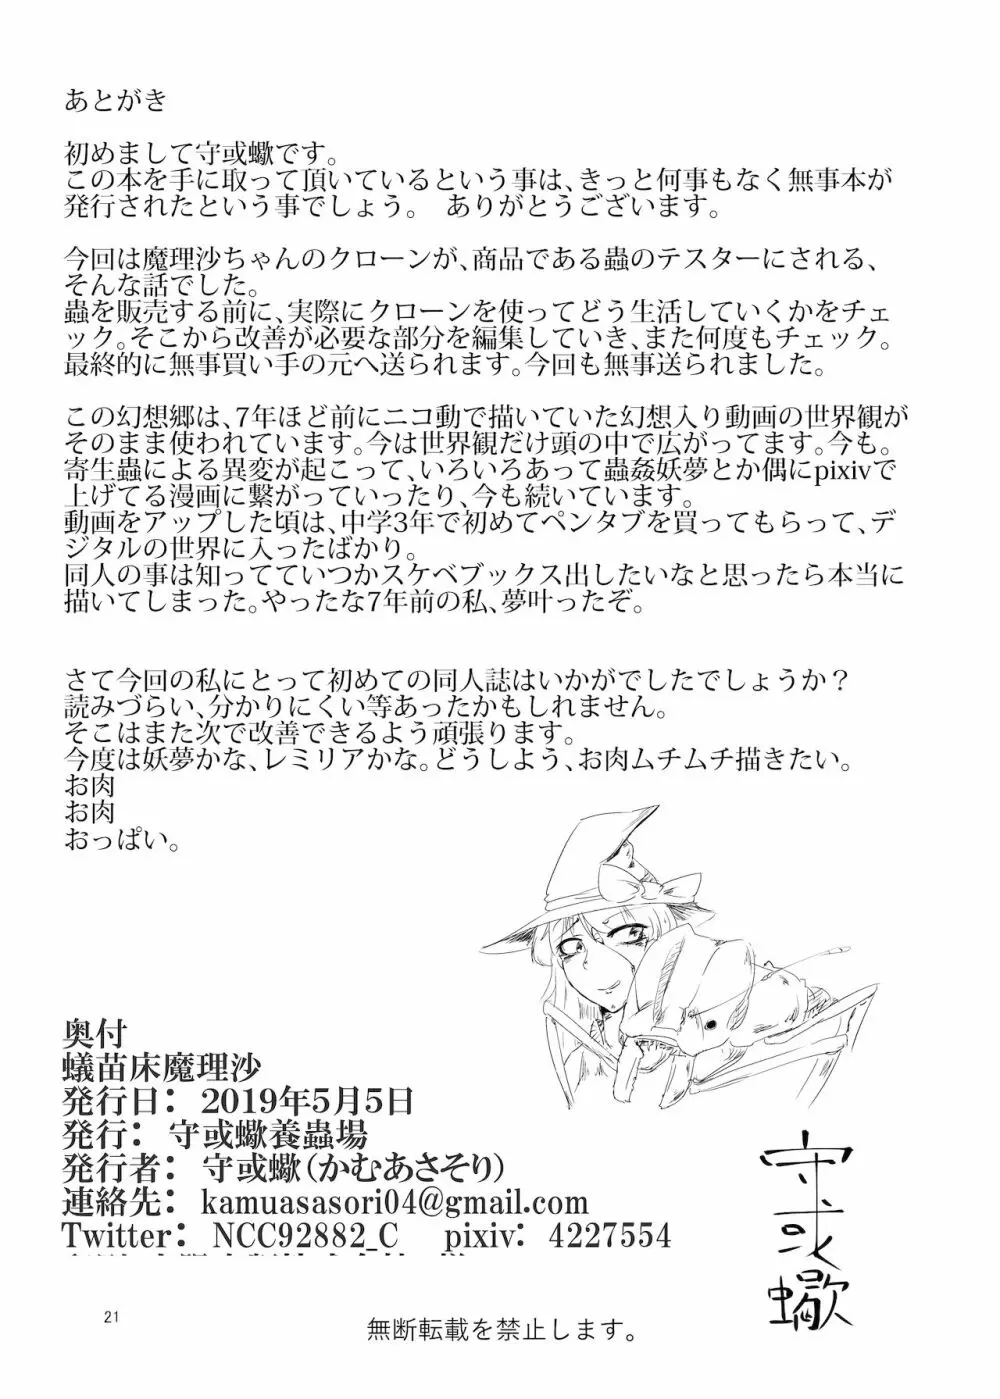 あとがき
初めまして守或蠍です。
この本を手に取って頂いているという事は、きっと何事もなく無事本が
発行されたという事でしょう。　ありがとうございます。
今回は魔理沙ちゃんのクローンが、商品である蟲のテスターにされる、
そんな話でした。
蟲を販売する前に、実際にクローンを使ってどう生活していくかをチェ
ック。そこから改善が必要な部分を編集していき、また何度もチェック。
最終的に無事買い手の元へ送られます。今回も無事送られました。
この幻想郷は、7年ほど前にニコ動で描いていた幻想入り動画の世界観が
そのまま使われています。今は世界観だけ頭の中で広がってます。今も。
寄生蟲による異変が起こって、いろいろあって蟲姦妖夢とか偶にpixivで
上げてる漫画に繋がっていったり、今も続いています。
動画をアップした頃は、中学3年で初めてペンタブを買ってもらって、デ
ジタルの世界に入ったばかり。
同人の事は知ってていつかスケベブックス出したいなと思ったら本当に
描いてしまった。やったな7年前の私、夢叶ったぞ。
さて今回の私にとって初めての同人誌はいかがでしたでしょうか？
読みづらい、分かりにくい等あったかもしれません。
そこはまた次で改善できるよう頑張ります。
今度は妖夢かな、レミリアかな。どうしよう、お肉ムチムチ描きたい。
お肉
お肉
おっぱい。
奥付
蟻苗床魔理沙
発行日：　2019年5月5日
発行：　守或蠍養蟲場
発行者：　守或蠍（かむあさそり）
連絡先：　kamuasasori04@gmail.com
Twitter：　NCC92882_C　pixiv：　4227554
守或蠍
21
無断転載を禁止します。